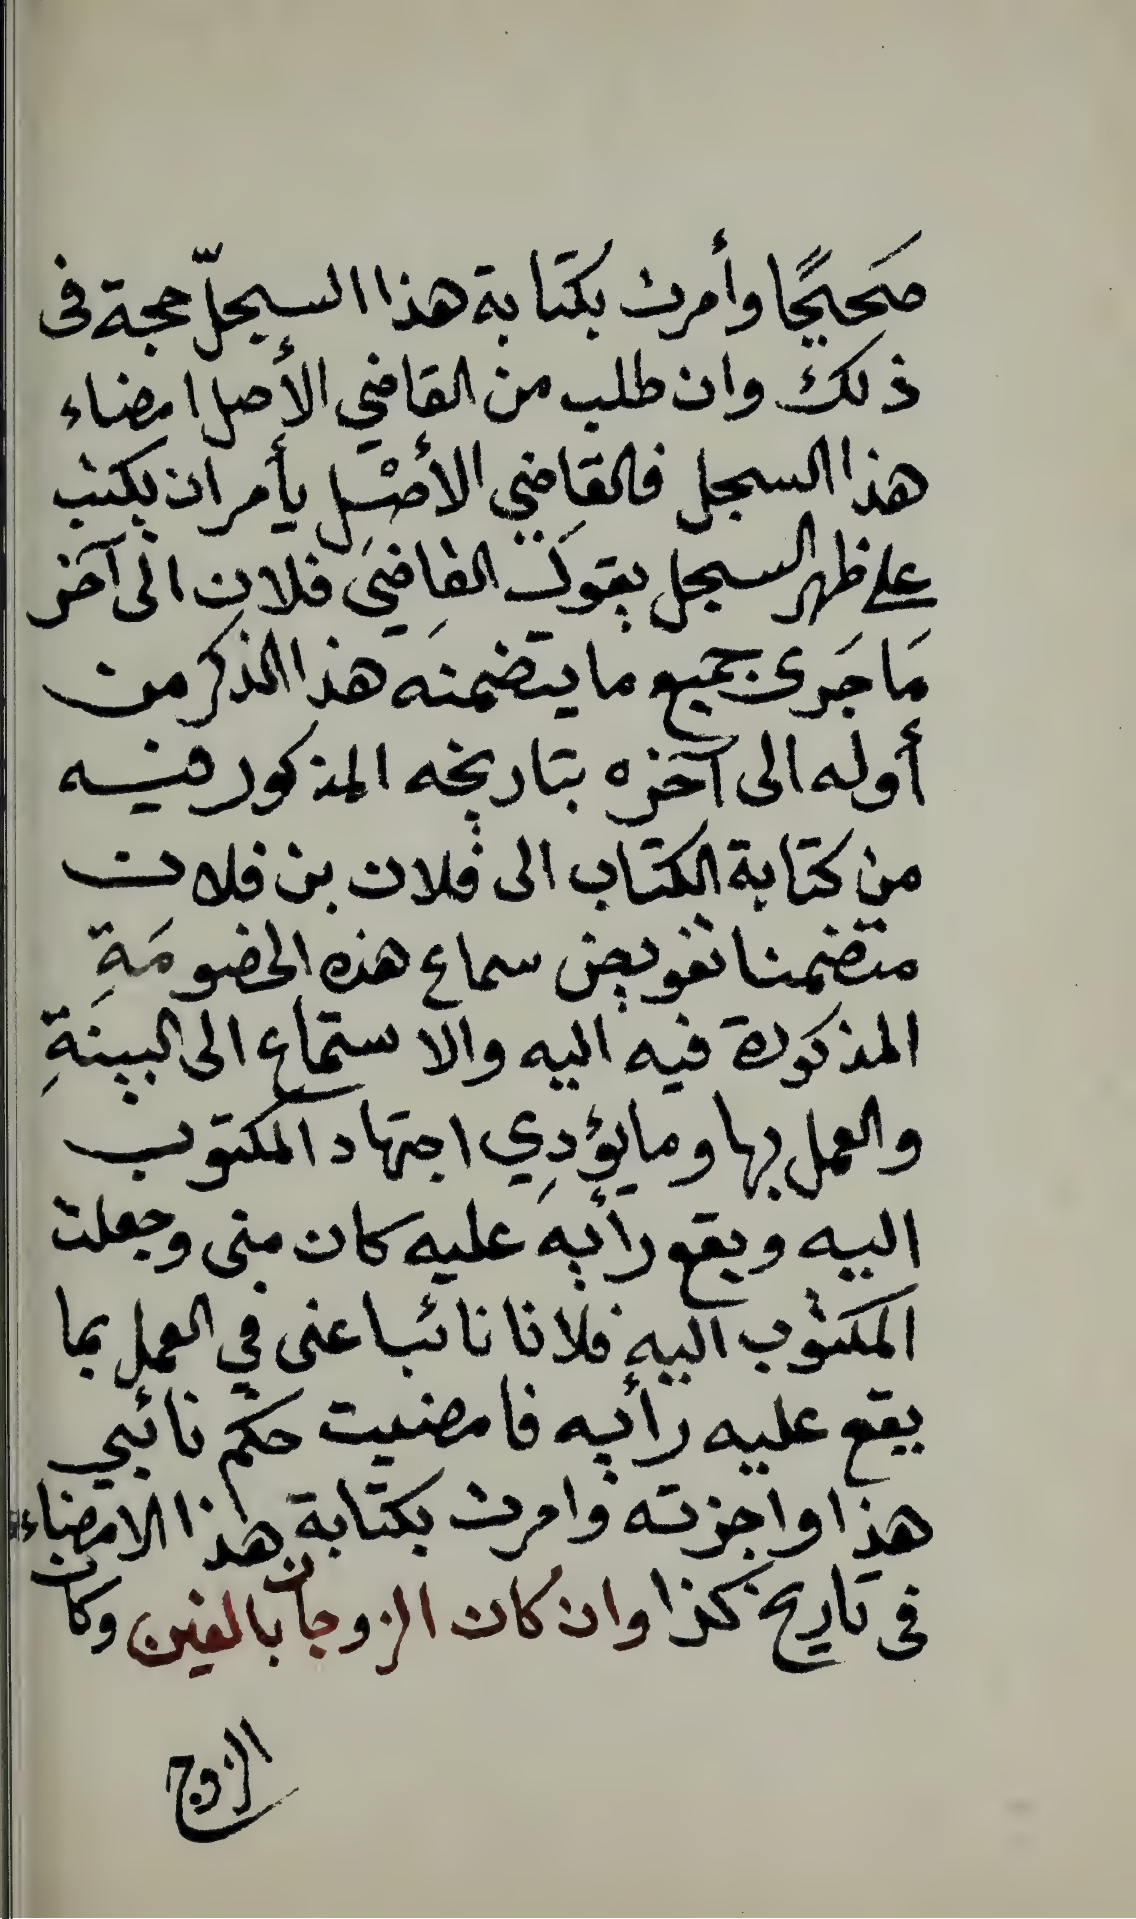 صَحيحًا وأمرت بكتابة هذا السجلّ حجة فى
ذلك وان طلب من القاضي الأصل امضاء
هذا السجل فالقاضي الأصْل يأمر ان يكتب
على ظهر السجل يقول القاضي فلان الى آخر
مَا جَرى جميع ما يتضمنه هذا الذكر من
أوله الى آخره بتاريخه المذكور فيه
من كتابة الكتاب الى فلان بن فلان
متضمنا تفويض سماع هذه الخصومَةِ
المذكورة فيه اليه والاستماع الى البينَةِ
والعمل بها وما يؤدِي اجتهاد المكتوب
اليه ويقع رأيه عليه كان منى وجعلت
المكتوب اليه فلانا نائبا عنى في العمل بما
يقع عليه رأيه فامضيت حكم نائبي
هذا واجزته وامرت بكتابة هذا الامضاء
فى تاريخ كذا وان كان الزوجان بالغين وكان
الزوج